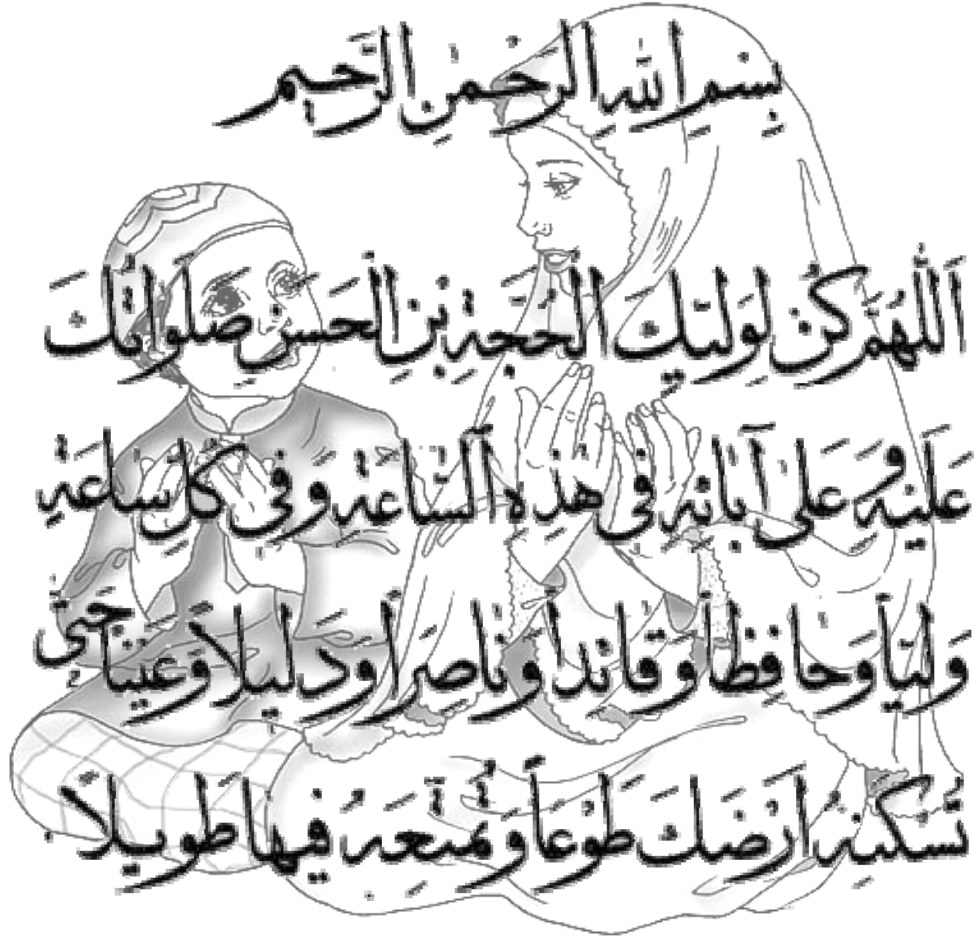 بِسْمِ اللهِ الرَّحْمٰنِ الرَّحِيمِ
اَللّٰهُمَّ كُنْ لِوَلِيِّكَ الْحُجَّةِ بْنِ الْحَسَنِ صَلَواتُكَ
عَلَيْهِ وَ عَلىٰ آبائِهِ في هٰذِهِ السّاعَةِ وَ في كُلِّ ساعَةٍ
وَلِيّاً وَ حافِظاً وَ قائِداً وَ ناصِراً وَ دَليلاً وَ عَيْناً حَتّىٰ
تُسْكِنَهُ اَرْضَكَ طَوْعاً وَ تُمَتِّعَهُ فيها طَويلاً